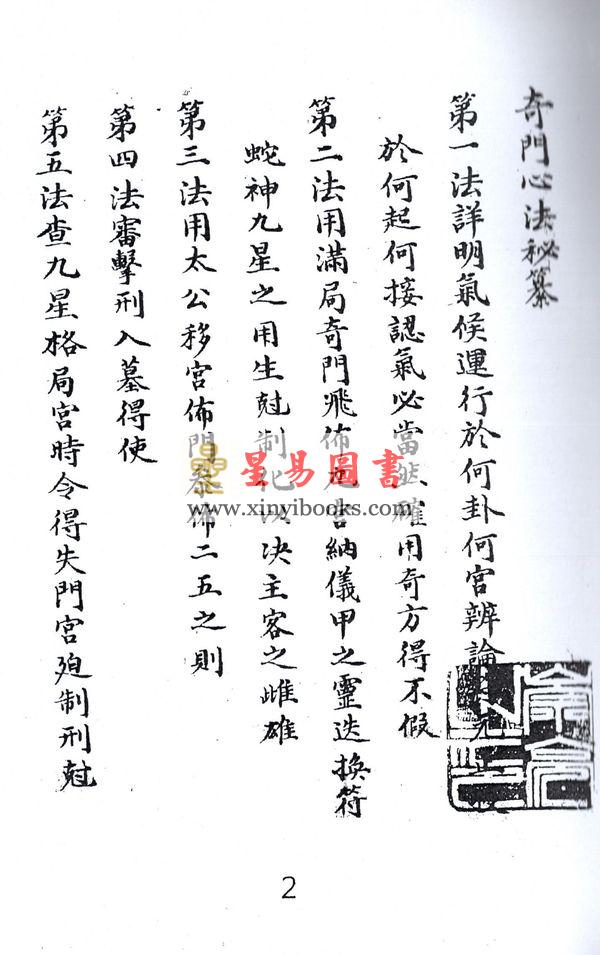 奇門心法秘纂
第一法詳明氣候運行於何卦何宮辨論
於何起何接認氣必當確用奇方得不假
第二法用滿局奇門飛佈納儀甲之靈迭換符
蛇神九星之用生尅制化以決主客之雌雄
第三法用太公移宮佈門佈二五之則
第四法審擊刑入墓得使
第五法查九星格局宮時令得失門宮廹制刑尅
星易圖書
www.xinyibooks.com
2